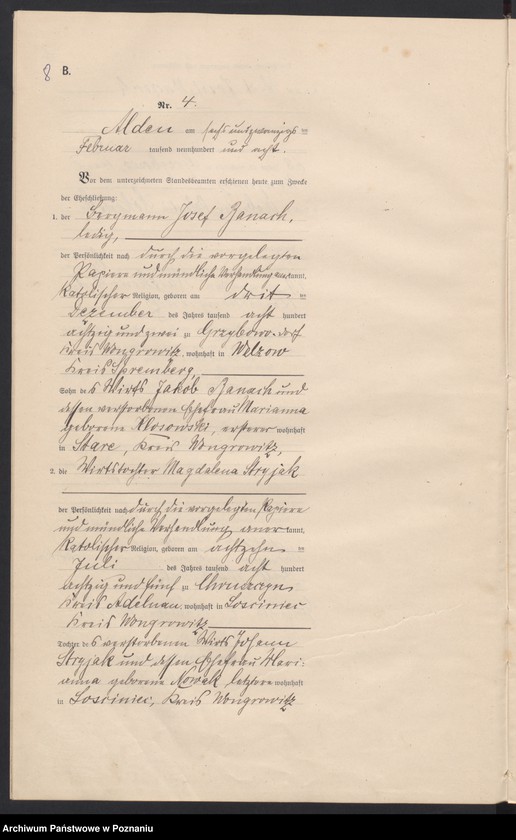 8 B.
Nr. 4.
Alden am sechsundzwanzigs ten
Februar tausend neunhundert und acht.
Vor dem unterzeichneten Standesbeamten erschienen heute zum Zwecke
der Eheschließung:
1. der Bergmann Josef Banach,
ledig,
der Persönlichkeit nach durch die vorgelegten
Papiere und mündliche Verhandlung aner kannt,
katolischer Religion, geboren am drit ten
Dezember des Jahres tausend acht hundert
achtzig und zwei zu Grzybowo-dorf
Kreis Wongrowitz, wohnhaft in Welzow
Kreis Spremberg,
Sohn des Wirts Jakob Banach und
dessen verstorbenen Ehefrau Marianna
geborene Klosowski, ersterer wohnhaft
in Stare, Kreis Wongrowitz,
2. die Wirtstochter Magdalena Stryjak
der Persönlichkeit nach durch die vorgelegten Papiere
und mündliche Verhandlung aner kannt,
katolischer Religion, geboren am achtzehn ten
Juli des Jahres tausend acht hundert
achtzig und fünf zu
Kreis Adelnau, wohnhaft in Losciniec
Kreis Wongrowitz
Tochter des verstorbenen Wirts Johann
Stryjak und dessen Ehefrau Mari:
anna geborene Nowak letztere wohnhaft
in Losciniec, Kreis Wongrowitz
Archiwum Państwowe w Poznaniu